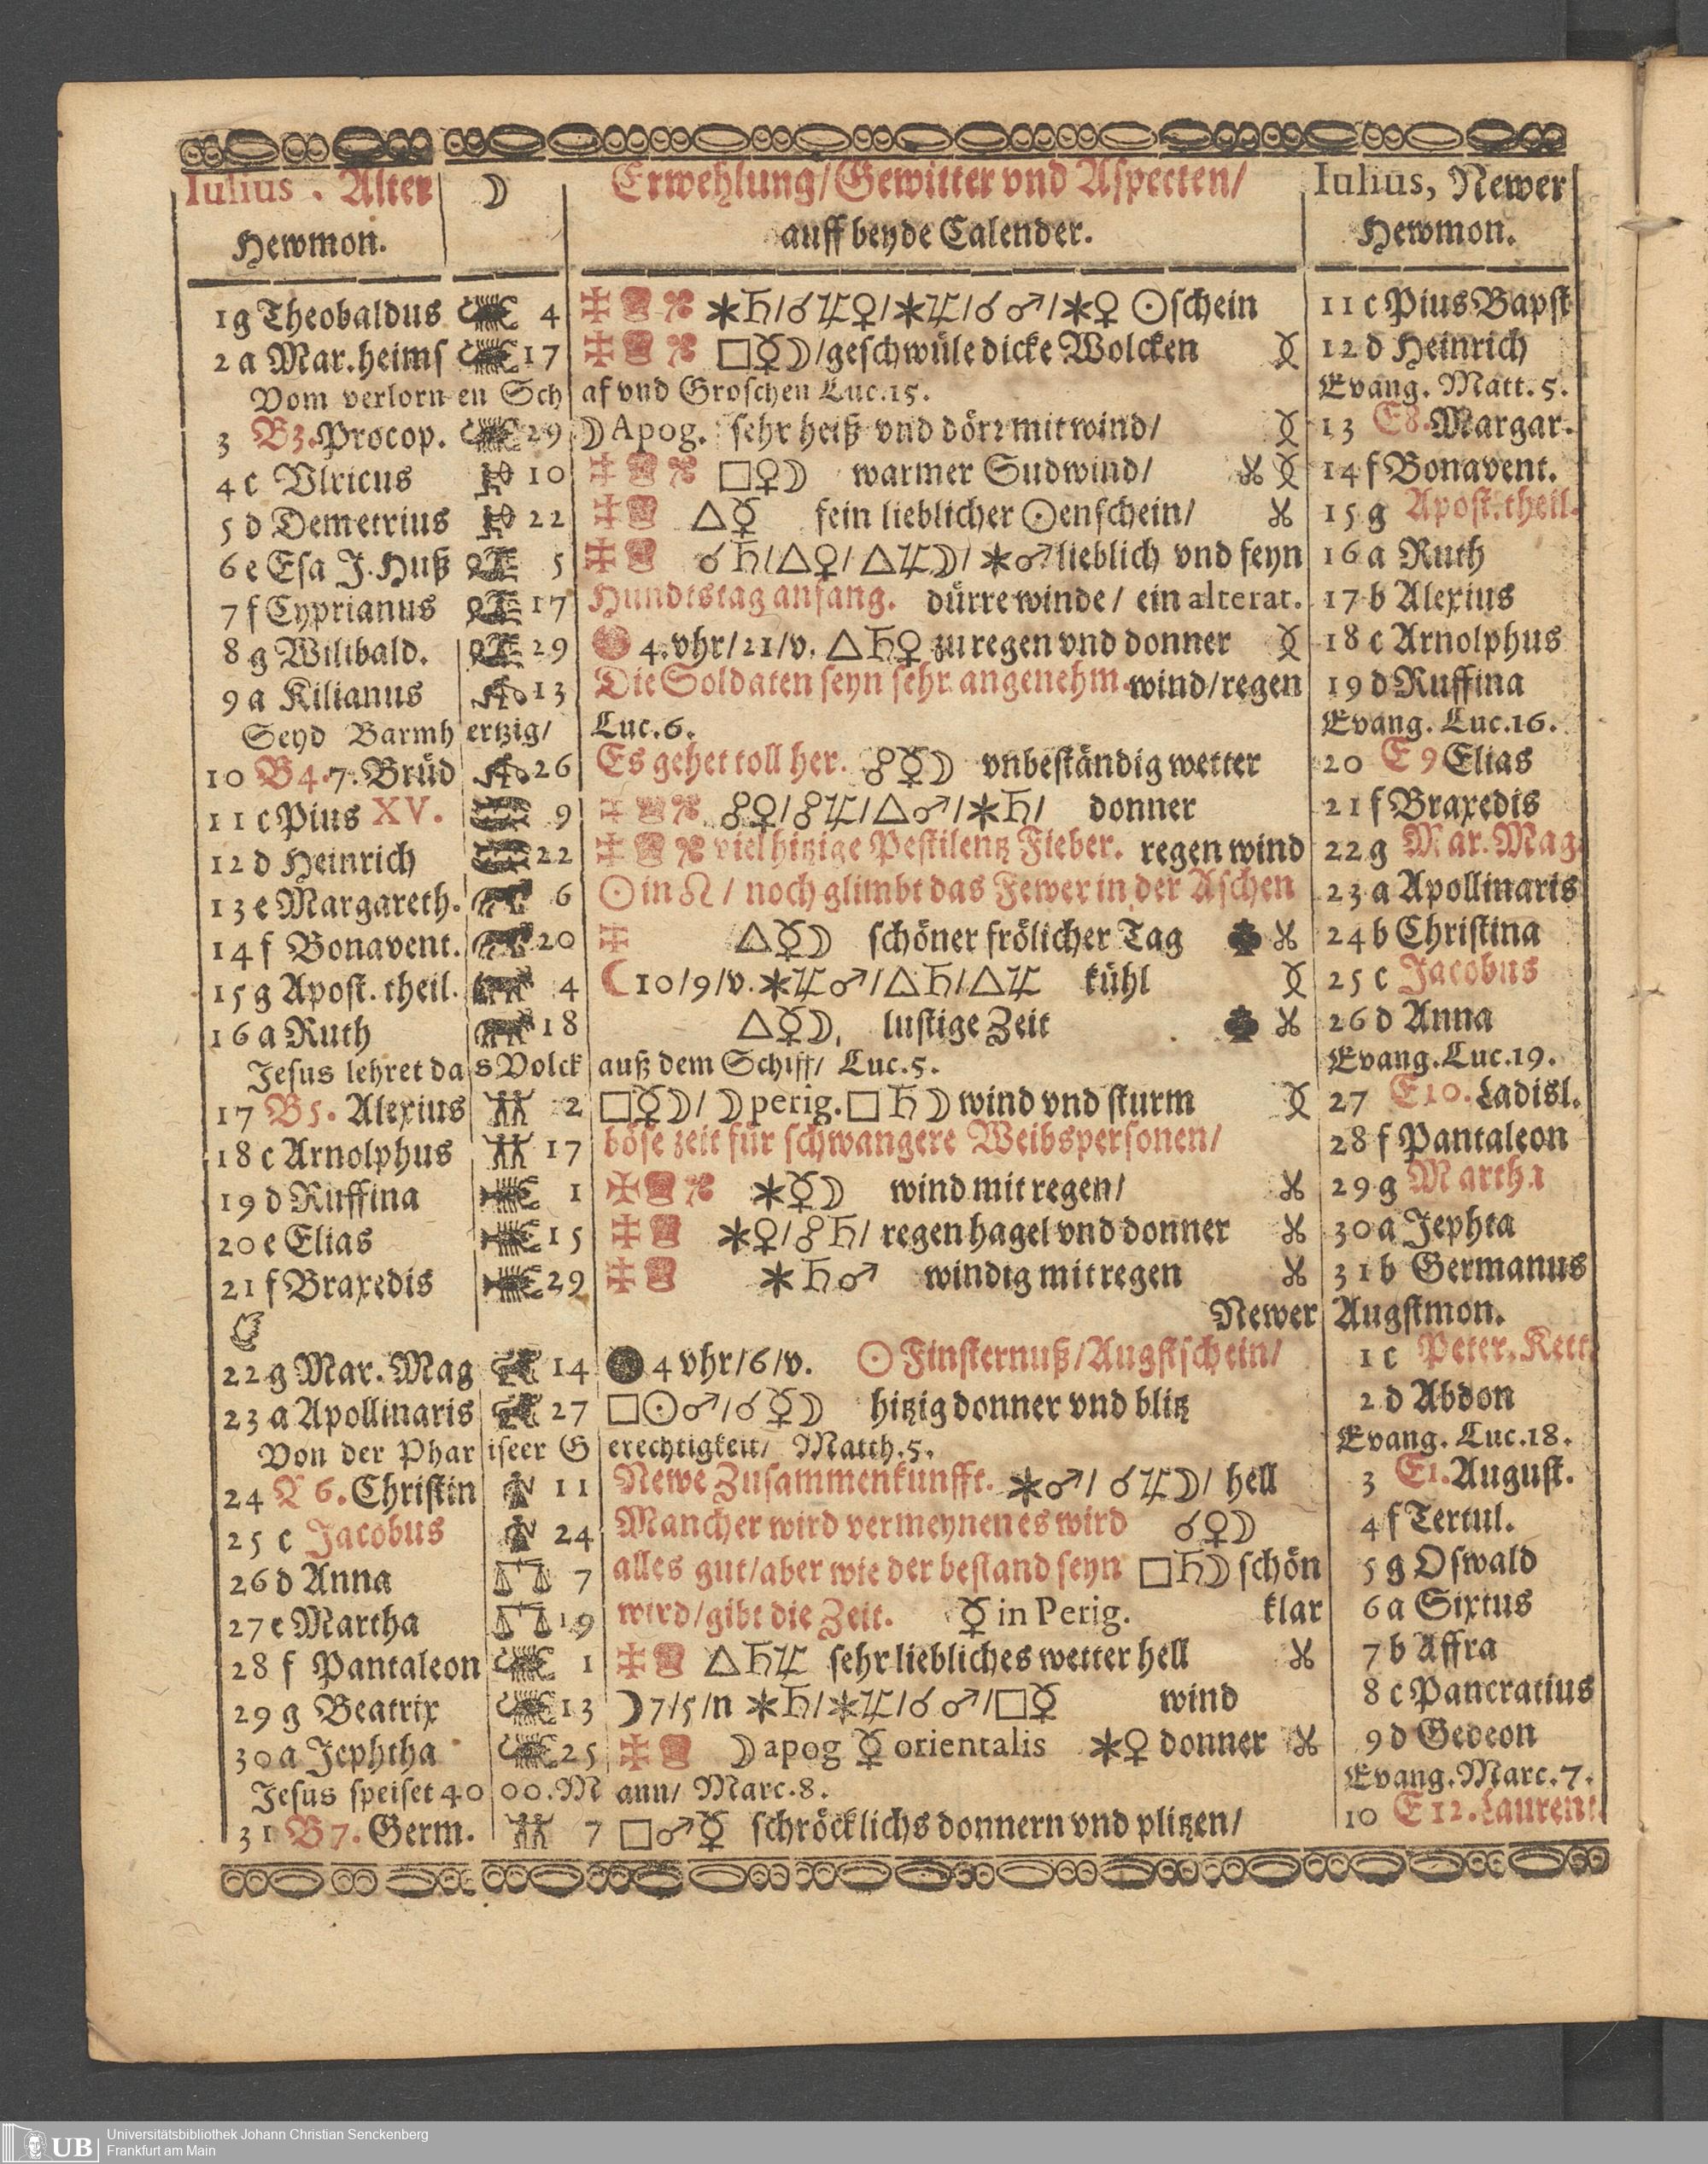 Iulius. Alter ☽ Erwehlung/Gewitter vnd Aspecten/ Iulius, Newer
Hewmon. auff beyde Calender. Hewmon.
1 g Theobaldus 4 ⚹♄/☌♃♀/⚹♃/☌♂/⚹♀ ☉schein 11 c Pius Bapst
2 a Mar. heims 17 □☿☽/geschwüle dicke Wolcken 12 d Heinrich
Vom verlornen Schaf vnd Groschen Luc. 15. Evang. Matt. 5.
3 B3. Procop. 29 ☽ Apog. sehr heiß vnd dörr mit wind/ 13 E8. Margar.
4 c Vlricus 10 □♀☽ warmer Sudwind/ 14 f Bonavent.
5 d Demetrius 22 △☿ fein lieblicher ☉enschein/ 15 g Apost. theil.
6 e Esa J. Huß 5 ☌♄/△♀/△♃☽/⚹♂ lieblich vnd feyn 16 a Ruth
7 f Cyprianus 17 Hundtstag anfang. dürre winde/ ein alterat. 17 b Alexius
8 g Wilibald. 29 4. vhr/21/v. △♄♀ zu regen vnd donner 18 c Arnolphus
9 a Kilianus 13 Die Soldaten seyn sehr angenehm. wind/regen 19 d Ruffina
Seyd Barmhertzig/ Luc. 6. Evang. Luc. 16.
10 B4. 7. Brüd 26 Es gehet toll her. ☍☿☽ vnbeständig wetter 20 E 9 Elias
11 c Pius XV. 9 ☍♀/☍♃/△♂/⚹♄/ donner 21 f Braxedis
12 d Heinrich 22 viel hitzige Pestilentz Fieber. regen wind 22 g Mar. Mag.
13 e Margareth. 6 ☉ in ♌/ noch glimbt das Fewer in der Aschen 23 a Apollinaris
14 f Bonavent. 20 △☿☽ schöner frölicher Tag 24 b Christina
15 g Apost. theil. 4 ☾10/9/v. ⚹♃♂/△♄/△♃ kühl 25 c Jacobus
16 a Ruth 18 △☿☽, lustige Zeit 26 d Anna
Jesus lehret das Volck auß dem Schiff/ Luc. 5. Evang. Luc. 19.
17 B5. Alexius 2 □☿☽/☽ perig. □♄☽ wind vnd sturm 27 E10. Ladisl.
18 c Arnolphus 17 böse zeit für schwangere Weibspersonen/ 28 f Pantaleon
19 d Ruffina 1 ⚹☿☽ wind mit regen/ 29 g Martha
20 e Elias 15 ⚹♀/☍♄/ regen hagel vnd donner 30 a Jephta
21 f Braxedis 29 ⚹♄♂ windig mit regen 31 b Germanus
Newer Augstmon.
22 g Mar. Mag 14 4 vhr/6/v. ☉ Finsternuß/Augstschein/ 1 c Peter. Kett.
23 a Apollinaris 27 □☉♂/☌☿☽ hitzig donner vnd blitz 2 d Abdon
Von der Phariseer Gerechtigkeit/ Matth. 5. Evang. Luc. 18.
24 6. Christin 11 Newe Zusammenkunfft. ⚹♂/☌♃☽/ hell 3 E1. August.
25 c Jacobus 24 Mancher wird vermeynen es wird ☌♀☽ 4 f Tertul.
26 d Anna 7 alles gut/aber wie der bestand seyn □♄☽ schön 5 g Oswald
27 e Martha 19 wird/gibt die Zeit. ☿ in Perig. klar 6 a Sixtus
28 f Pantaleon 1 △♄♃ sehr liebliches wetter hell 7 b Affra
29 g Beatrix 13 ☽7/5/n ⚹♄/⚹♃/☌♂/□☿ wind 8 c Pancratius
30 a Jephtha 25 ☽ apog ☿ orientalis ⚹♀ donner 9 d Gedeon
Jesus speiset 4000. Mann/ Marc. 8. Evang. Marc. 7.
31 B 7. Germ. 7 □♂☿ schröcklichs donnern vnd plitzen/ 10 E 12. Laurent.
UB Universitätsbibliothek Johann Christian Senckenberg
Frankfurt am Main